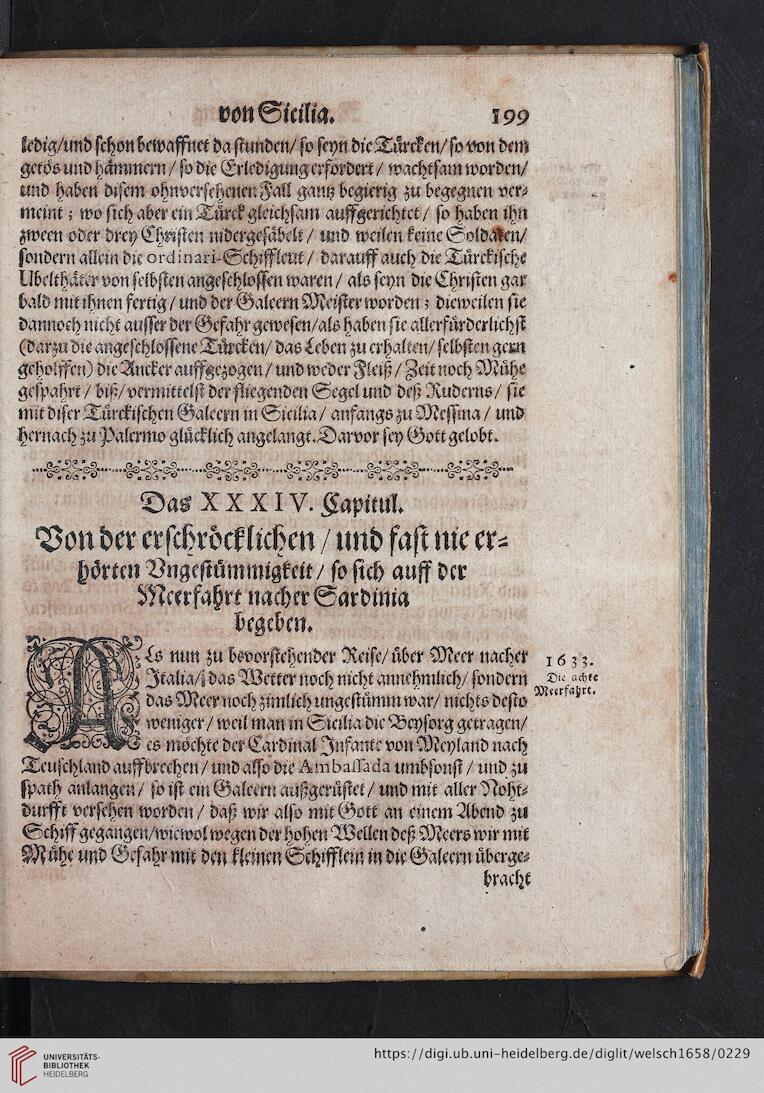 von Sicilia. 199
ledig/und schon bewaffnet da stunden/ so seyn die Türcken/ so von dem
getös und hämmern / so die Erledigung erfordert / wachtsam worden/
und haben disem ohnversehenen Fall gantz begierig zu begegnen ver-
meint ; wo sich aber ein Türck gleichsam auffgerichtet / so haben ihn
zween oder drey Christen nidergesäbelt / und weilen keine Soldaten/
sondern allein die ordinari-Schiffleut / darauff auch die Türckische
Ubelthäter von selbsten angeschlossen waren / als seyn die Christen gar
bald mit ihnen fertig / und der Galeern Meister worden ; dieweilen sie
dannoch nicht ausser der Gefahr gewesen/als haben sie allerfürderlichst
(darzu die angeschlossene Türcken/ das Leben zu erhalten/ selbsten gern
geholffen) die Ancker auffgezogen / und weder Fleiß / Zeit noch Mühe
gespahrt / biß/ vermittelst der fliegenden Segel und deß Ruderns / sie
mit diser Türckischen Galeern in Sicilia / anfangs zu Messina / und
hernach zu Palermo glücklich angelangt. Darvor sey Gott gelobt.
Das XXXIV. Capitul.
Von der erschröcklichen / und fast nie er-
hörten Vngestümmigkeit / so sich auff der
Meerfahrt nacher Sardinia
begeben.
ALs nun zu bevorstehender Reise/ über Meer nacher
Italia/ das Wetter noch nicht annehmlich/ sondern
das Meer noch zimlich ungestümm war/ nichts desto
weniger / weil man in Sicilia die Beysorg getragen/
es möchte der Cardinal Infante von Meyland nach
Teuschland auffbrechen / und also die Ambassada umbsonst / und zu
spath anlangen / so ist ein Galeern außgerüstet / und mit aller Noht-
durfft versehen worden / daß wir also mit Gott an einem Abend zu
Schiff gegangen/wiewol wegen der hohen Wellen deß Meers wir mit
Mühe und Gefahr mit den kleinen Schifflein in die Galeern überge-
bracht
1633.
Die achte
Meerfahrt.
UNIVERSITÄTS-
BIBLIOTHEK
HEIDELBERG
https://digi.ub.uni-heidelberg.de/diglit/welsch1658/0229